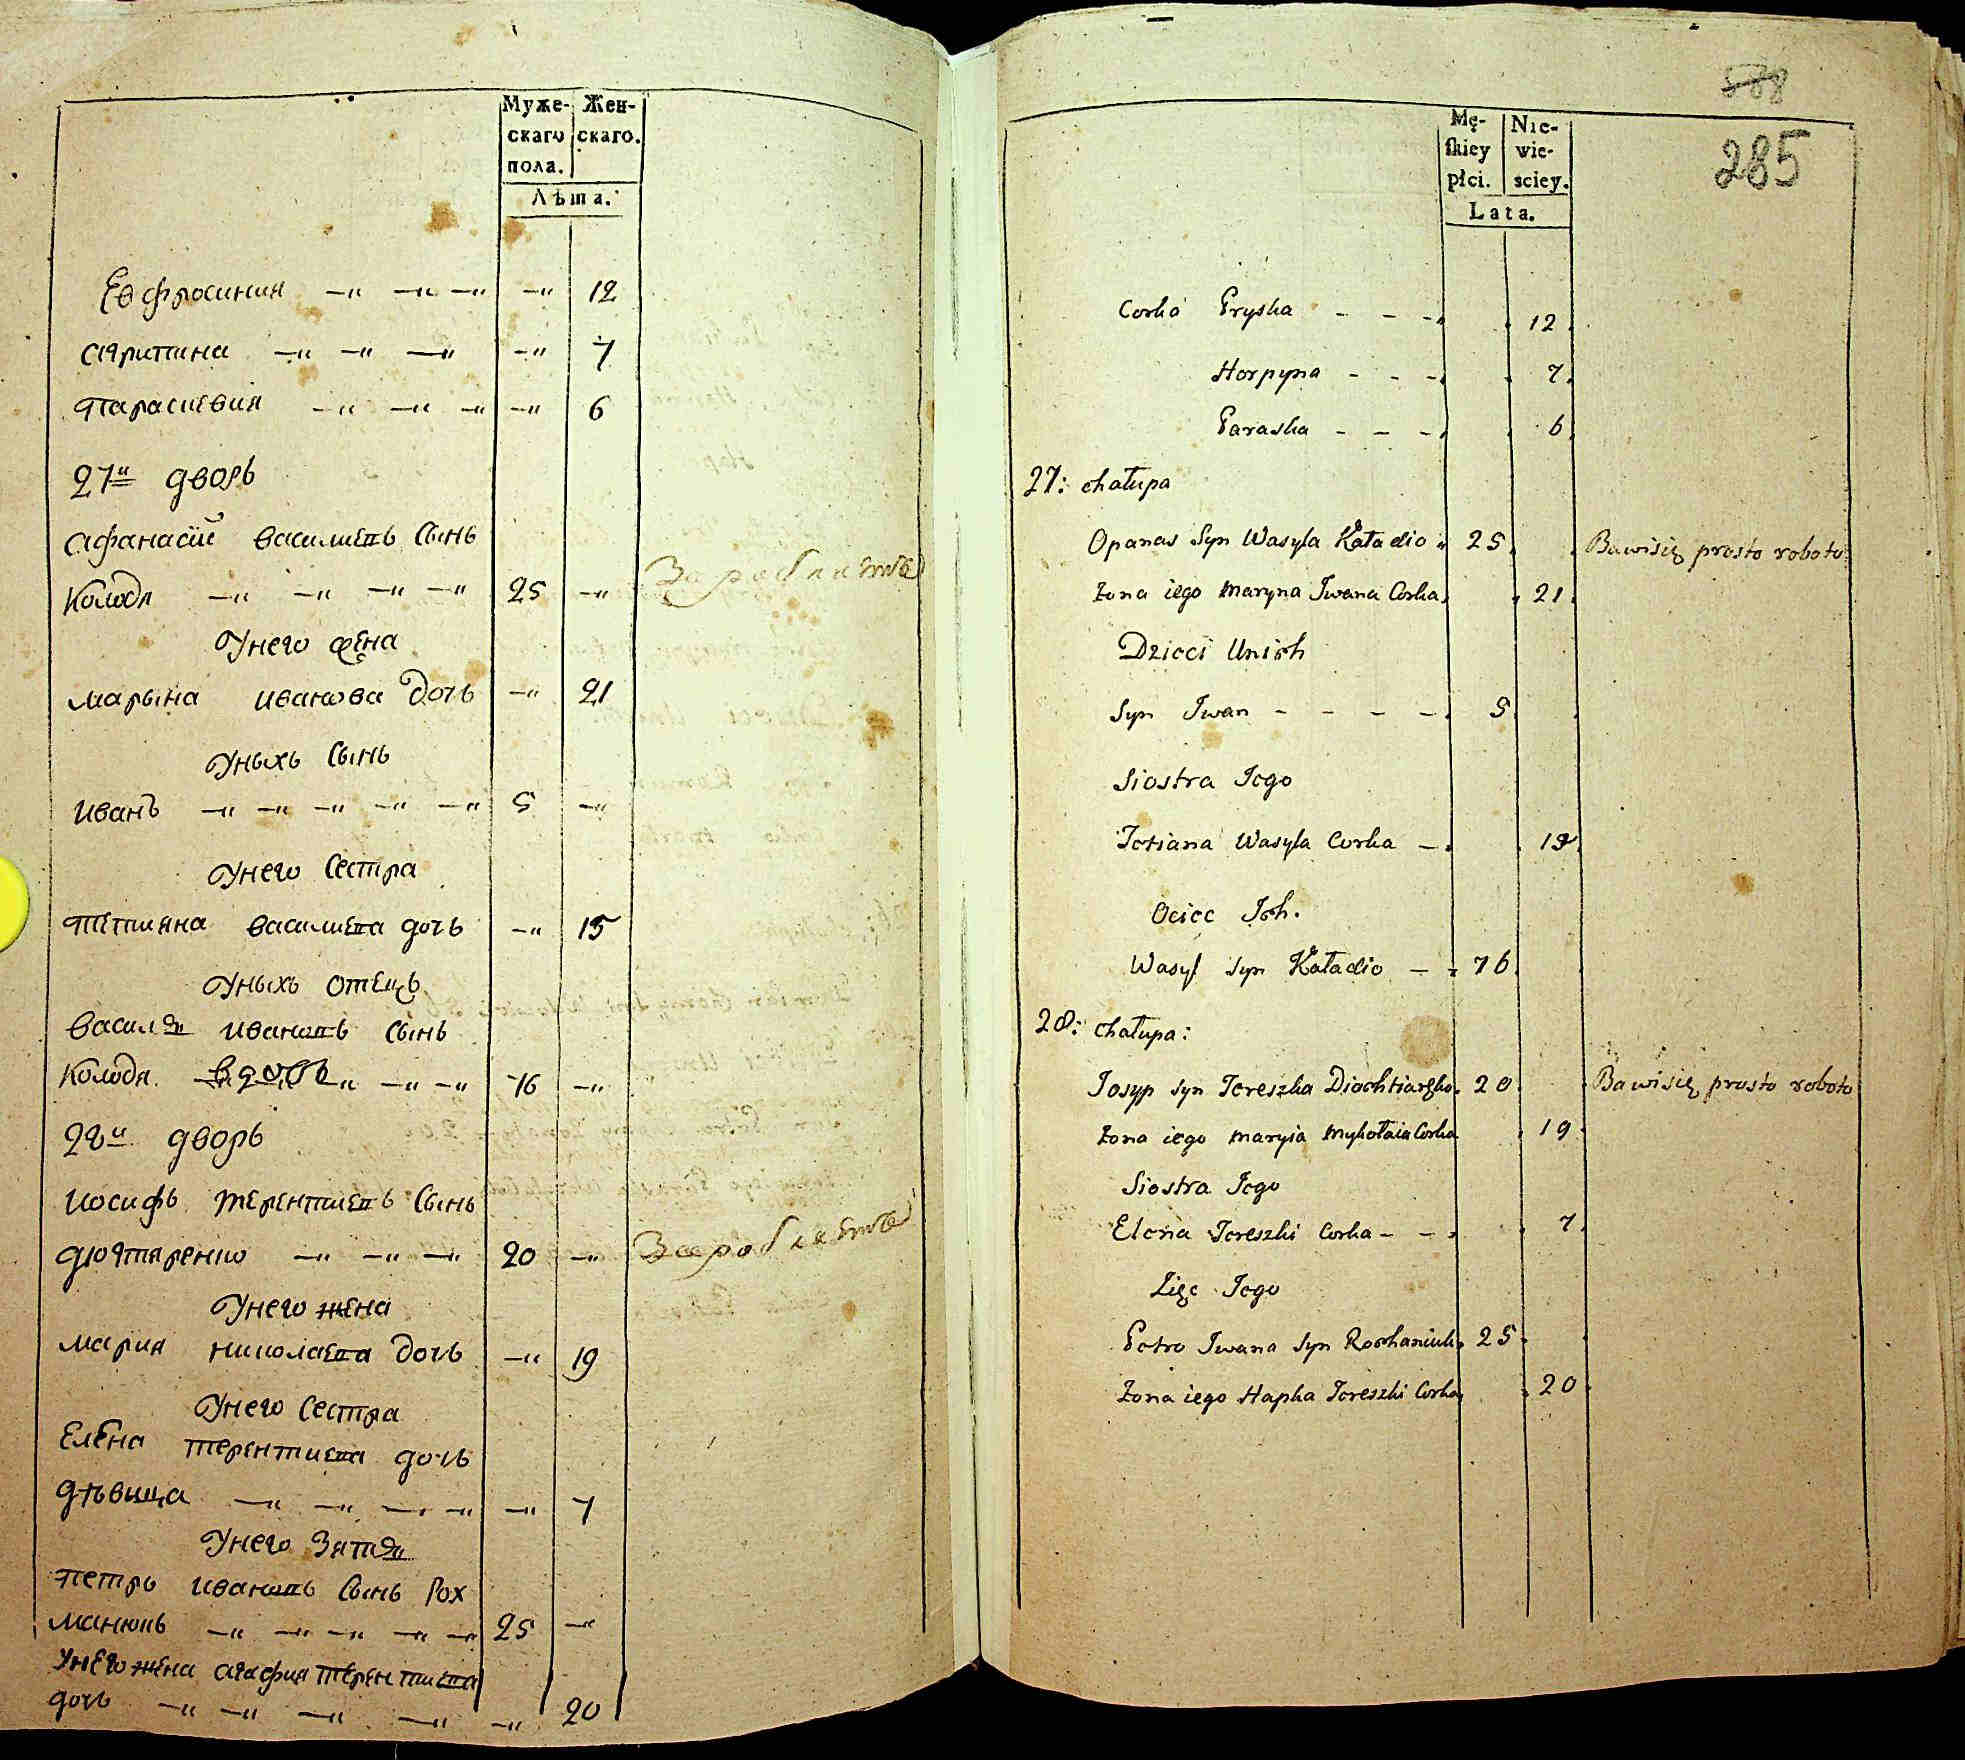 Муже-
скаго
пола.
Жен-
скаго.
Лѣта.
Евфросиния —" —" —" —" 12
Агрипина —" —" —" —" 7
Параскевия —" —" —" —" 6
27й дворъ
Афанасий василиевъ Сынъ
Колодя —" —" —" —" 25 —"
У него жена
Марына иванова дочь —" 21
У ныхъ Сынъ
иванъ —" —" —" —" —" 5 —"
У него Сестра
татияна василиева дочь —" 15
У ныхъ отецъ
василя ивановъ Сынъ
Колодя —" —" 76 —"
28й дворъ
иосифъ терентиевъ Сынъ
дюхтяренко —" —" —" 20 —"
У него жена
Мария николаева дочь —" 19
У него Сестра
Елена терентиева дочь
дѣвица —" —" —" —" —" 7
У него Зятя
петръ ивановъ Сынъ Рох
манюкъ —" —" —" —" —" 25 —"
У него жена агафия терентиева
дочь —" —" —" —" —" 20
508
285
Mę-
skiey
płci.
Nie-
wie-
sciey.
Lata.
Corka Pryska - - - 12
Horpyna - - - 7
Paraska - - - 6
27: chałupa
Opanas Syn Wasyla Kaładio 25 Bawisię prosto roboto
żona iego Maryna Iwana Corka 21
Dzieci Unich
Syn Iwan - - - - 5
Siostra Iego
Tetiana Wasyla Corka —
Ociec Ich.
Wasyl syn Kaładio — 76
28: chałupa:
Iosyp syn Tereszka Diachtiarenko 20 Bawisię prosto roboto
żona iego Maryia Mykołaia Corka 19
Siostra Iego
Elena Tereszki Corka - - 7
Zięc Iego
Petro Iwana Syn Rochaniuk 25
żona iego Hapka Tereszki Corka 20